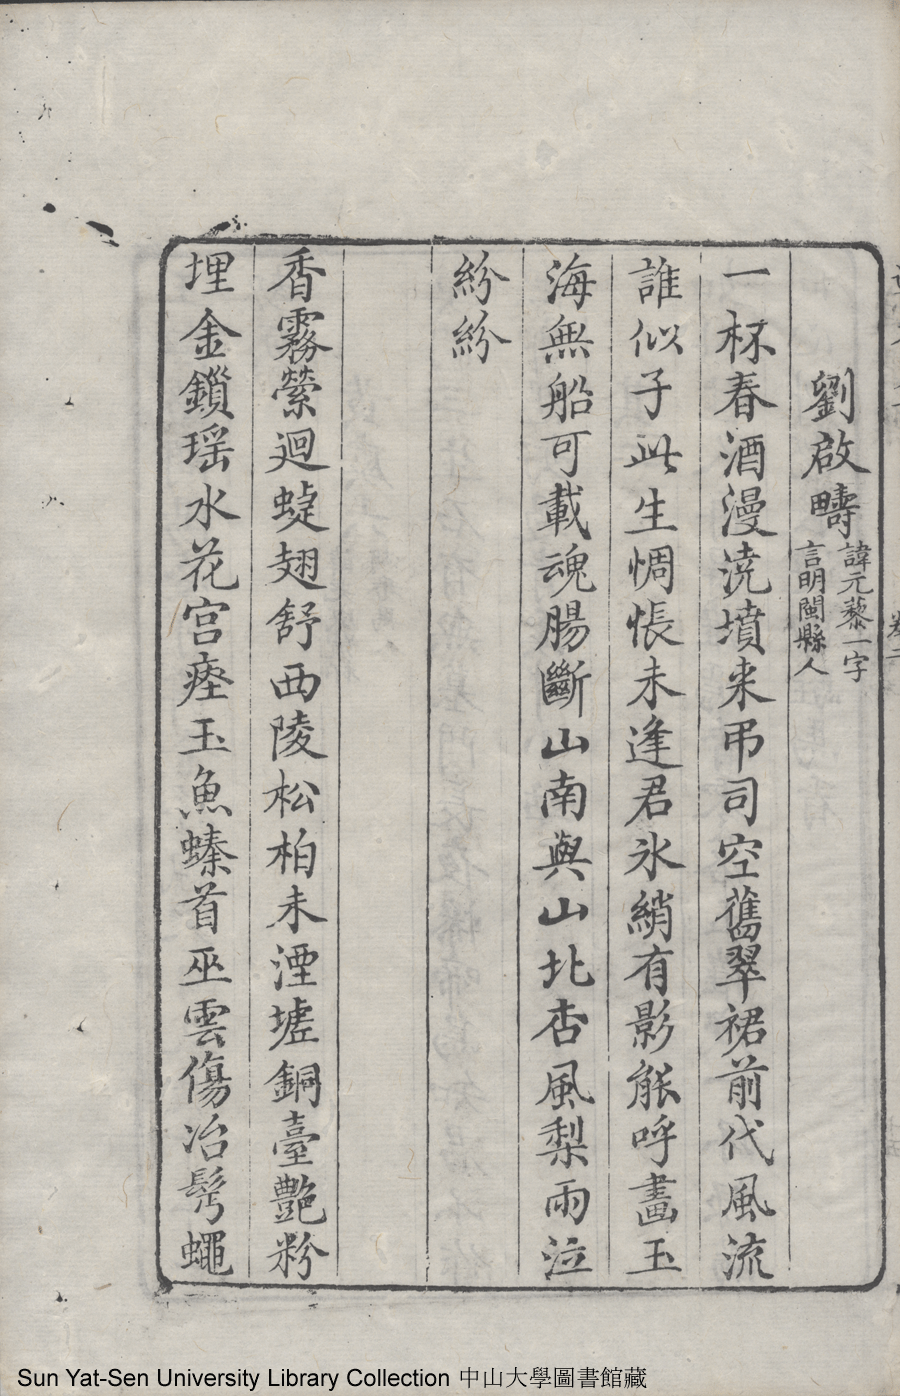 劉啟疇 諱元藜一字
言明閩縣人
一杯春酒漫澆墳来弔司空舊翠裙前代風流
誰似子此生惆悵未逢君氷綃有影能呼畵玉
海無船可載魂腸斷山南與山北杏風梨雨泣
紛紛
香霧縈迴蜨翅舒西陵松柏未湮墟銅臺艷粉
埋金鎖瑶水花宫瘞玉魚螓首巫雲傷冶髩蠅
Sun Yat-Sen University Library Collection 中山大學圖書館藏